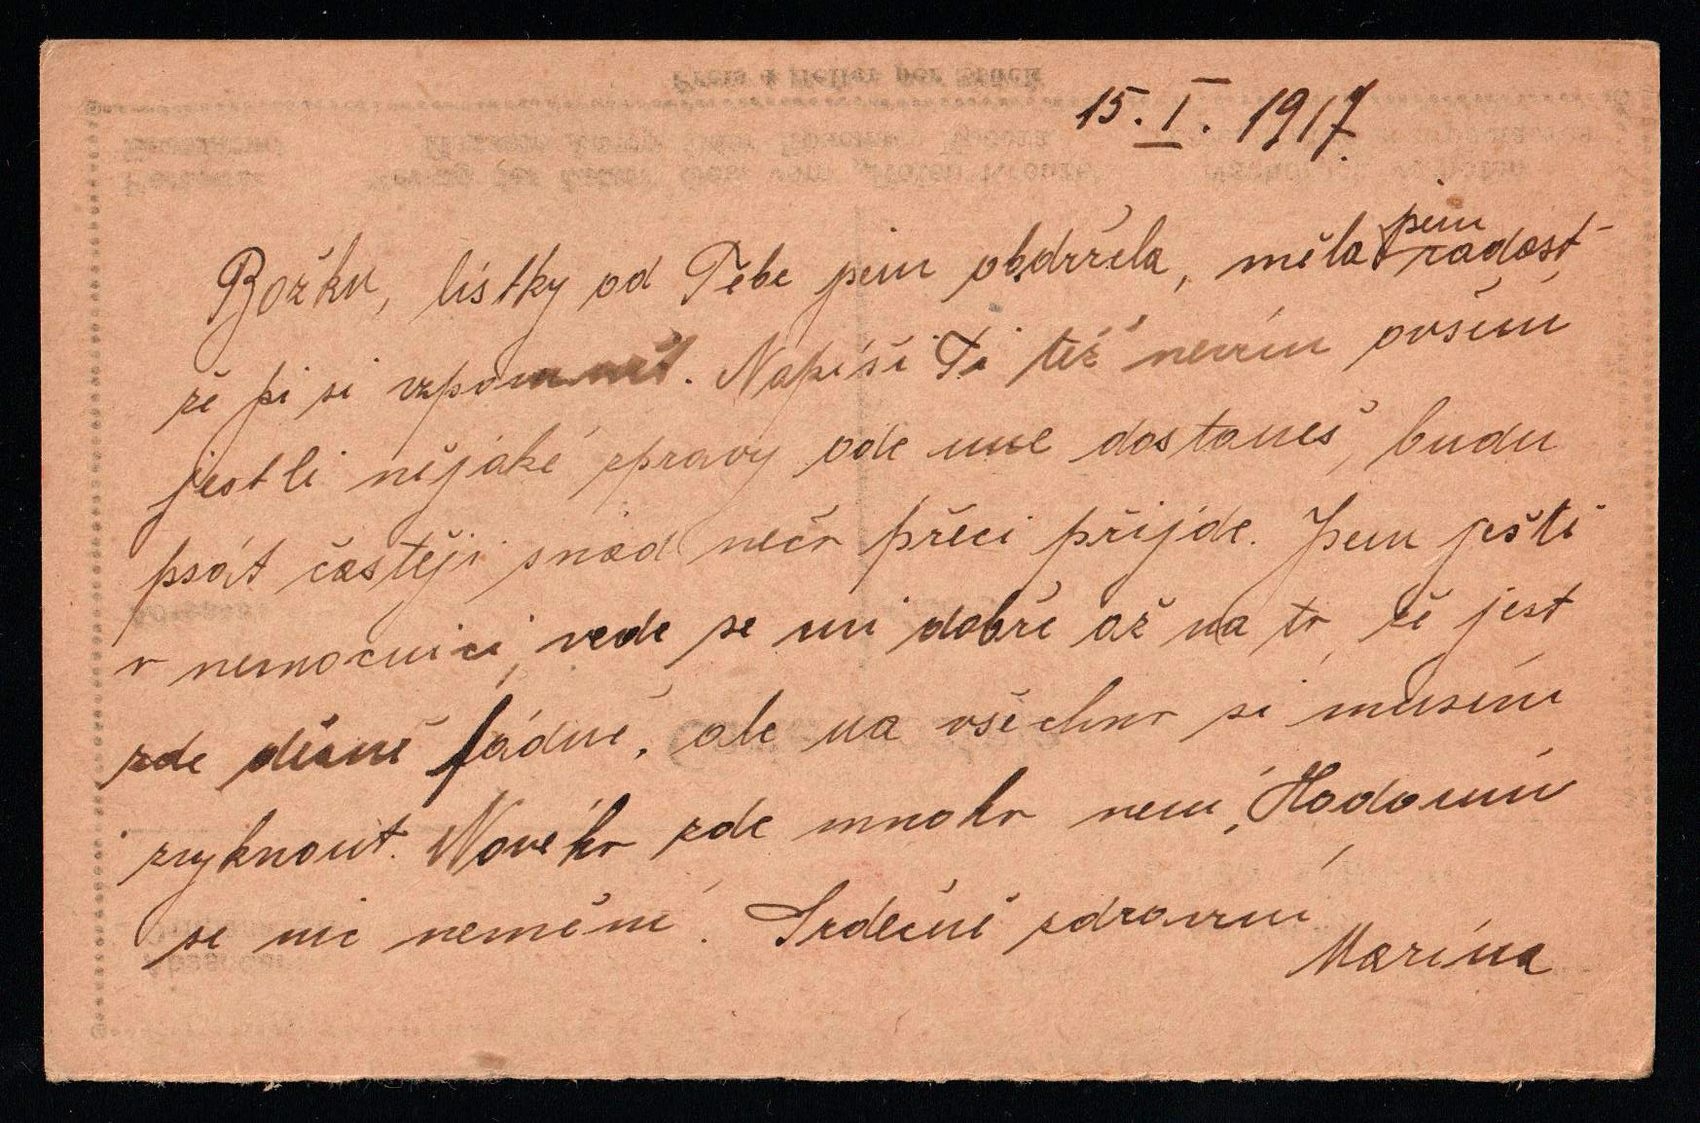 15. I. 1917.
Božku, lístky od Tebe jsem obdržela, měla jsem radost
že jsi si vzpomněl. Napíši Ti též nevím ovšem
jestli nějaké zprávy ode mne dostaneš, budu
psát častěji snad něco přeci přijde. Jsem ješte
v nemocnici, vede se mi dobře až na to, že jest
zde děsně fádně, ale na všechno si musím
zvyknout. Nového zde mnoho není, Hodonín
se nic nemění. Srdečně zdravím
Marína